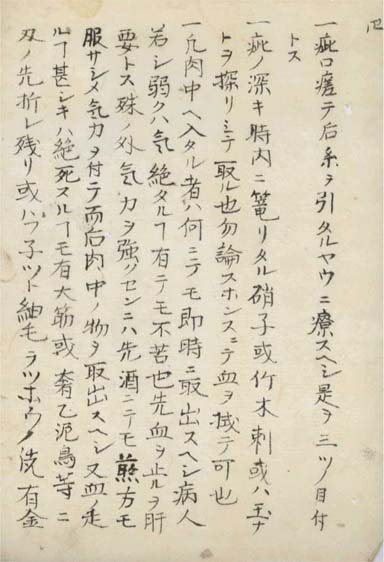 一疵口癒テ后糸ヲ引タルヤウニ療スヘシ是ヲ三ツ目付
トス
一疵ノ深キ時内ニ篭リタル硝子或竹木刺或ハ玉ナ
トヲ探リミテ取ル也勿論スホンスニテ血ヲ拭テ可也
一凡肉中ヘ入タル者ハ何ニテモ即時ニ取出スヘシ病人
若シ弱クハ氣絶タルヿ有テモ不苦也先血ヲ止ルヲ肝
要トス殊ノ外氣力ヲ強クセンニハ先酒ニテモ煎方モ
服サシメ氣力ヲ付テ而后肉中ノ物ヲ取出スヘシ又血ノ走
ルヿ甚シキハ絶死スルヿモ有大筋或
等ニ
刄ノ先折レ残リ或ハ